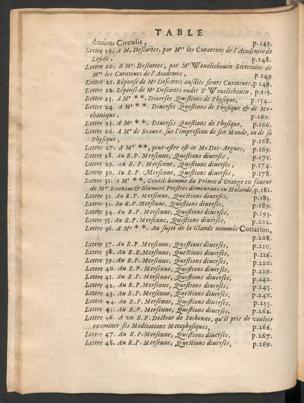 TABLE
duobus Circulis, p.145.
Lettre 19. A M. Descartes, par Mrs les Curateurs de l'Academie de
Leyde, p.148.
Lettre 20. A Mr Descartes, par Mr Wevelichouen Secretaire de
Mrs les Curateurs de l'Academie, p.149
Lettre 21. Réponse de Mr Descartes ausdits sieurs Curateurs, p.149.
Lettre 22. Réponse de Mr Descartes audit Sr Wevelichouen, p.151.
Lettre 23. A Mr **. Diverses Questions de Physique, p.154.
Lettre 24. A Mr **. Diverses Questions de Physique & de Me-
chanique, p.160.
Lettre 25. A Mr **. Diverses Questions de Physique, p.166.
Lettre 26. A Mr de Beaune, sur l'impression de son Monde, ou de sa
Physique, p.168.
Lettre 27. A Mr **, peut-estre est-ce Mr Des-Argues, p.169.
Lettre 28. Au R.P. Mersenne, Questions diverses, p.171.
Lettre 29. Au R.P. Mersenne, Questions diverses, p.174.
Lettre 30. Au R.P. Mersenne, Questions diverses, p.178.
Lettre 31. A Mr **, Gentil-homme du Prince d'Orange en faveur
de Mrs & Prestres demeurans en Holande, p.181.
Lettre 32. Au R.P. Mersenne, Questions diverses, p.183.
Lettre 33. Au R.P. Mersenne, Questions diverses,
Lettre 34. Au R.P. Mersenne, Questions diverses, p.193.
Lettre 35. Au R.P. Mersenne, Questions diverses, p.202.
Lettre 36. A Mr **. Au sujet de la Glande nommée Conarion,
p.208.
Lettre 37. Au R.P. Mersenne, Questions diverses, p.210.
Lettre 38. Au R.P. Mersenne, Questions diverses,
Lettre 39. Au R.P. Mersenne, Questions diverses, p.220.
Lettre 40. Au R.P. Mersenne, Questions diverses,
Lettre 41. Au R.P. Mersenne, Questions diverses,
Lettre 42. Au R.P. Mersenne, Questions diverses,
Lettre 43. Au R.P. Mersenne, Questions diverses,
Lettre 44. Au R.P. Mersenne, Questions diverses,
Lettre 45. Au R.P. Mersenne, Questions diverses,
Lettre 46. A un R.P. Docteur de Sorbonne, qu'il prie de vouloir
examiner ses Meditations Metaphysiques, p.266.
Lettre 47. Au R.P. Mersenne, Questions diverses, p.267.
Lettre 48. Au R.P. Mersenne, Questions diverses, p.269.